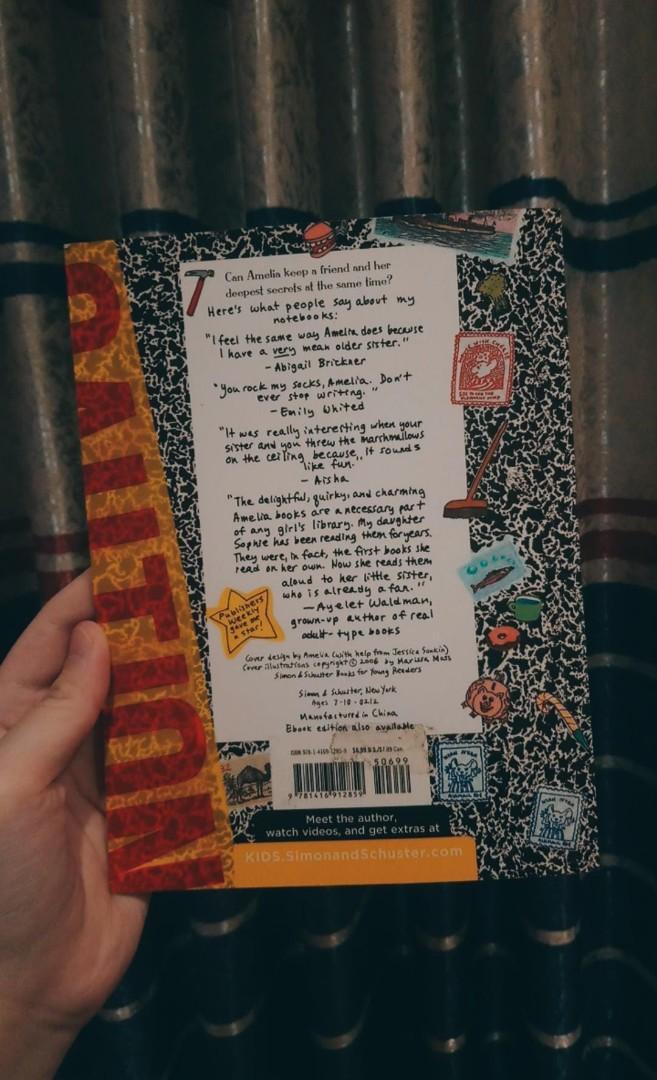 Can Amelia keep a friend and her
deepest secrets at the same time?
Here's what people say about my
notebooks:
"I feel the same way Amelia does because
I have a very mean older sister."
- Abigail Brickner
"You rock my socks, Amelia. Don't
ever stop writing."
- Emily Whited
"It was really interesting when your
sister and you threw the marshmallows
on the ceiling because it sounds
like fun."
- Aisha
"The delightful, quirky, and charming
Amelia books are a necessary part
of any girl's library. My daughter
Sophie has been reading them for years.
They were, in fact, the first books she
read on her own. Now she reads them
aloud to her little sister,
who is already a fan."
—Ayelet Waldman,
grown-up author of real
adult-type books
Publishers
Weekly
gave me
a star!
Cover design by Amelia (with help from Jessica Sonkin)
Cover illustrations copyright © 2006 by Marissa Moss
Simon & Schuster Books for Young Readers
Simon & Schuster, New York
Ages 7-10 · 0212
Manufactured in China
Ebook edition also available
50699
9 781416 912859
Meet the author,
watch videos, and get extras at
KIDS.SimonandSchuster.com